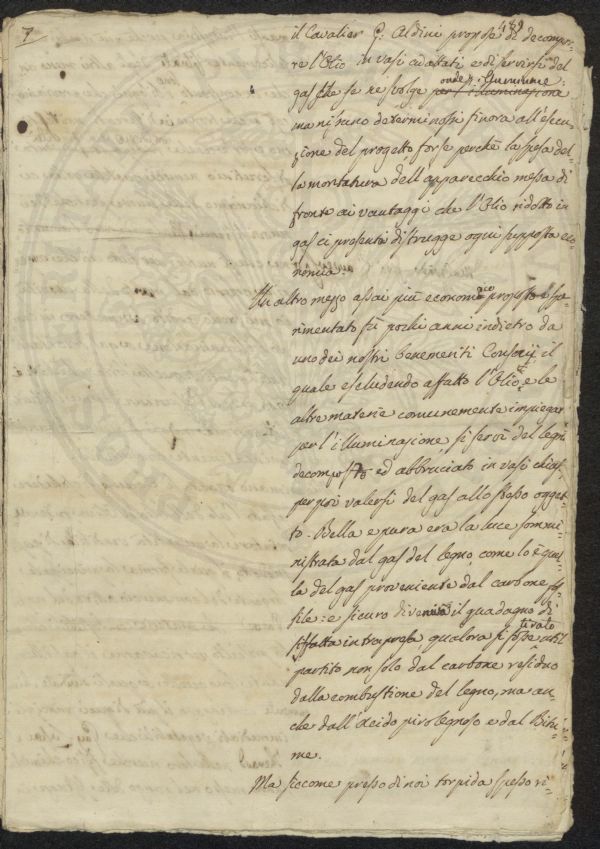 7
489
il Cavalier G: Aldini propose di decompor=
re l'Olio in vasi adatati, e di servirsi del
gas che se ne svolge onde illuminare;
per l'illuminazione
ma nissuno determinossi finora all'esecu=
zione del progetto, forse perchè la spesa del=
la montatura dell'apparecchio messa di
fronte ai vantaggi che l'Olio ridotto in
gas ci presenta distrugge ogni supposta eco=
nomia.
Un altro mezzo assai più economico proposto e spe=
rimentato fù pochi anni indietro da
uno dei nostri benemeriti Consocij il
quale escludendo affatto l'Olio, e le
altre materie comunemente impiegate
per l'illuminazione, si servì del legno
decomposto ed abbruciato in vasi chiusi
per poi valersi del gas allo stesso ogget=
to. Bella e pura era la luce sommi=
nistrata dal gas del legno, come lo è quel=
la del gas proveniente dal carbone fos=
sile: e sicuro diveniva il guadagno di
siffatta intrapresa qualora si fosse tirato
partito non solo dal carbone residuo
dalla combustione del legno, ma an=
che dall'Acido pirolegnoso e dal Bitu=
me.
Ma siccome presso di noi torpida spesso ri=